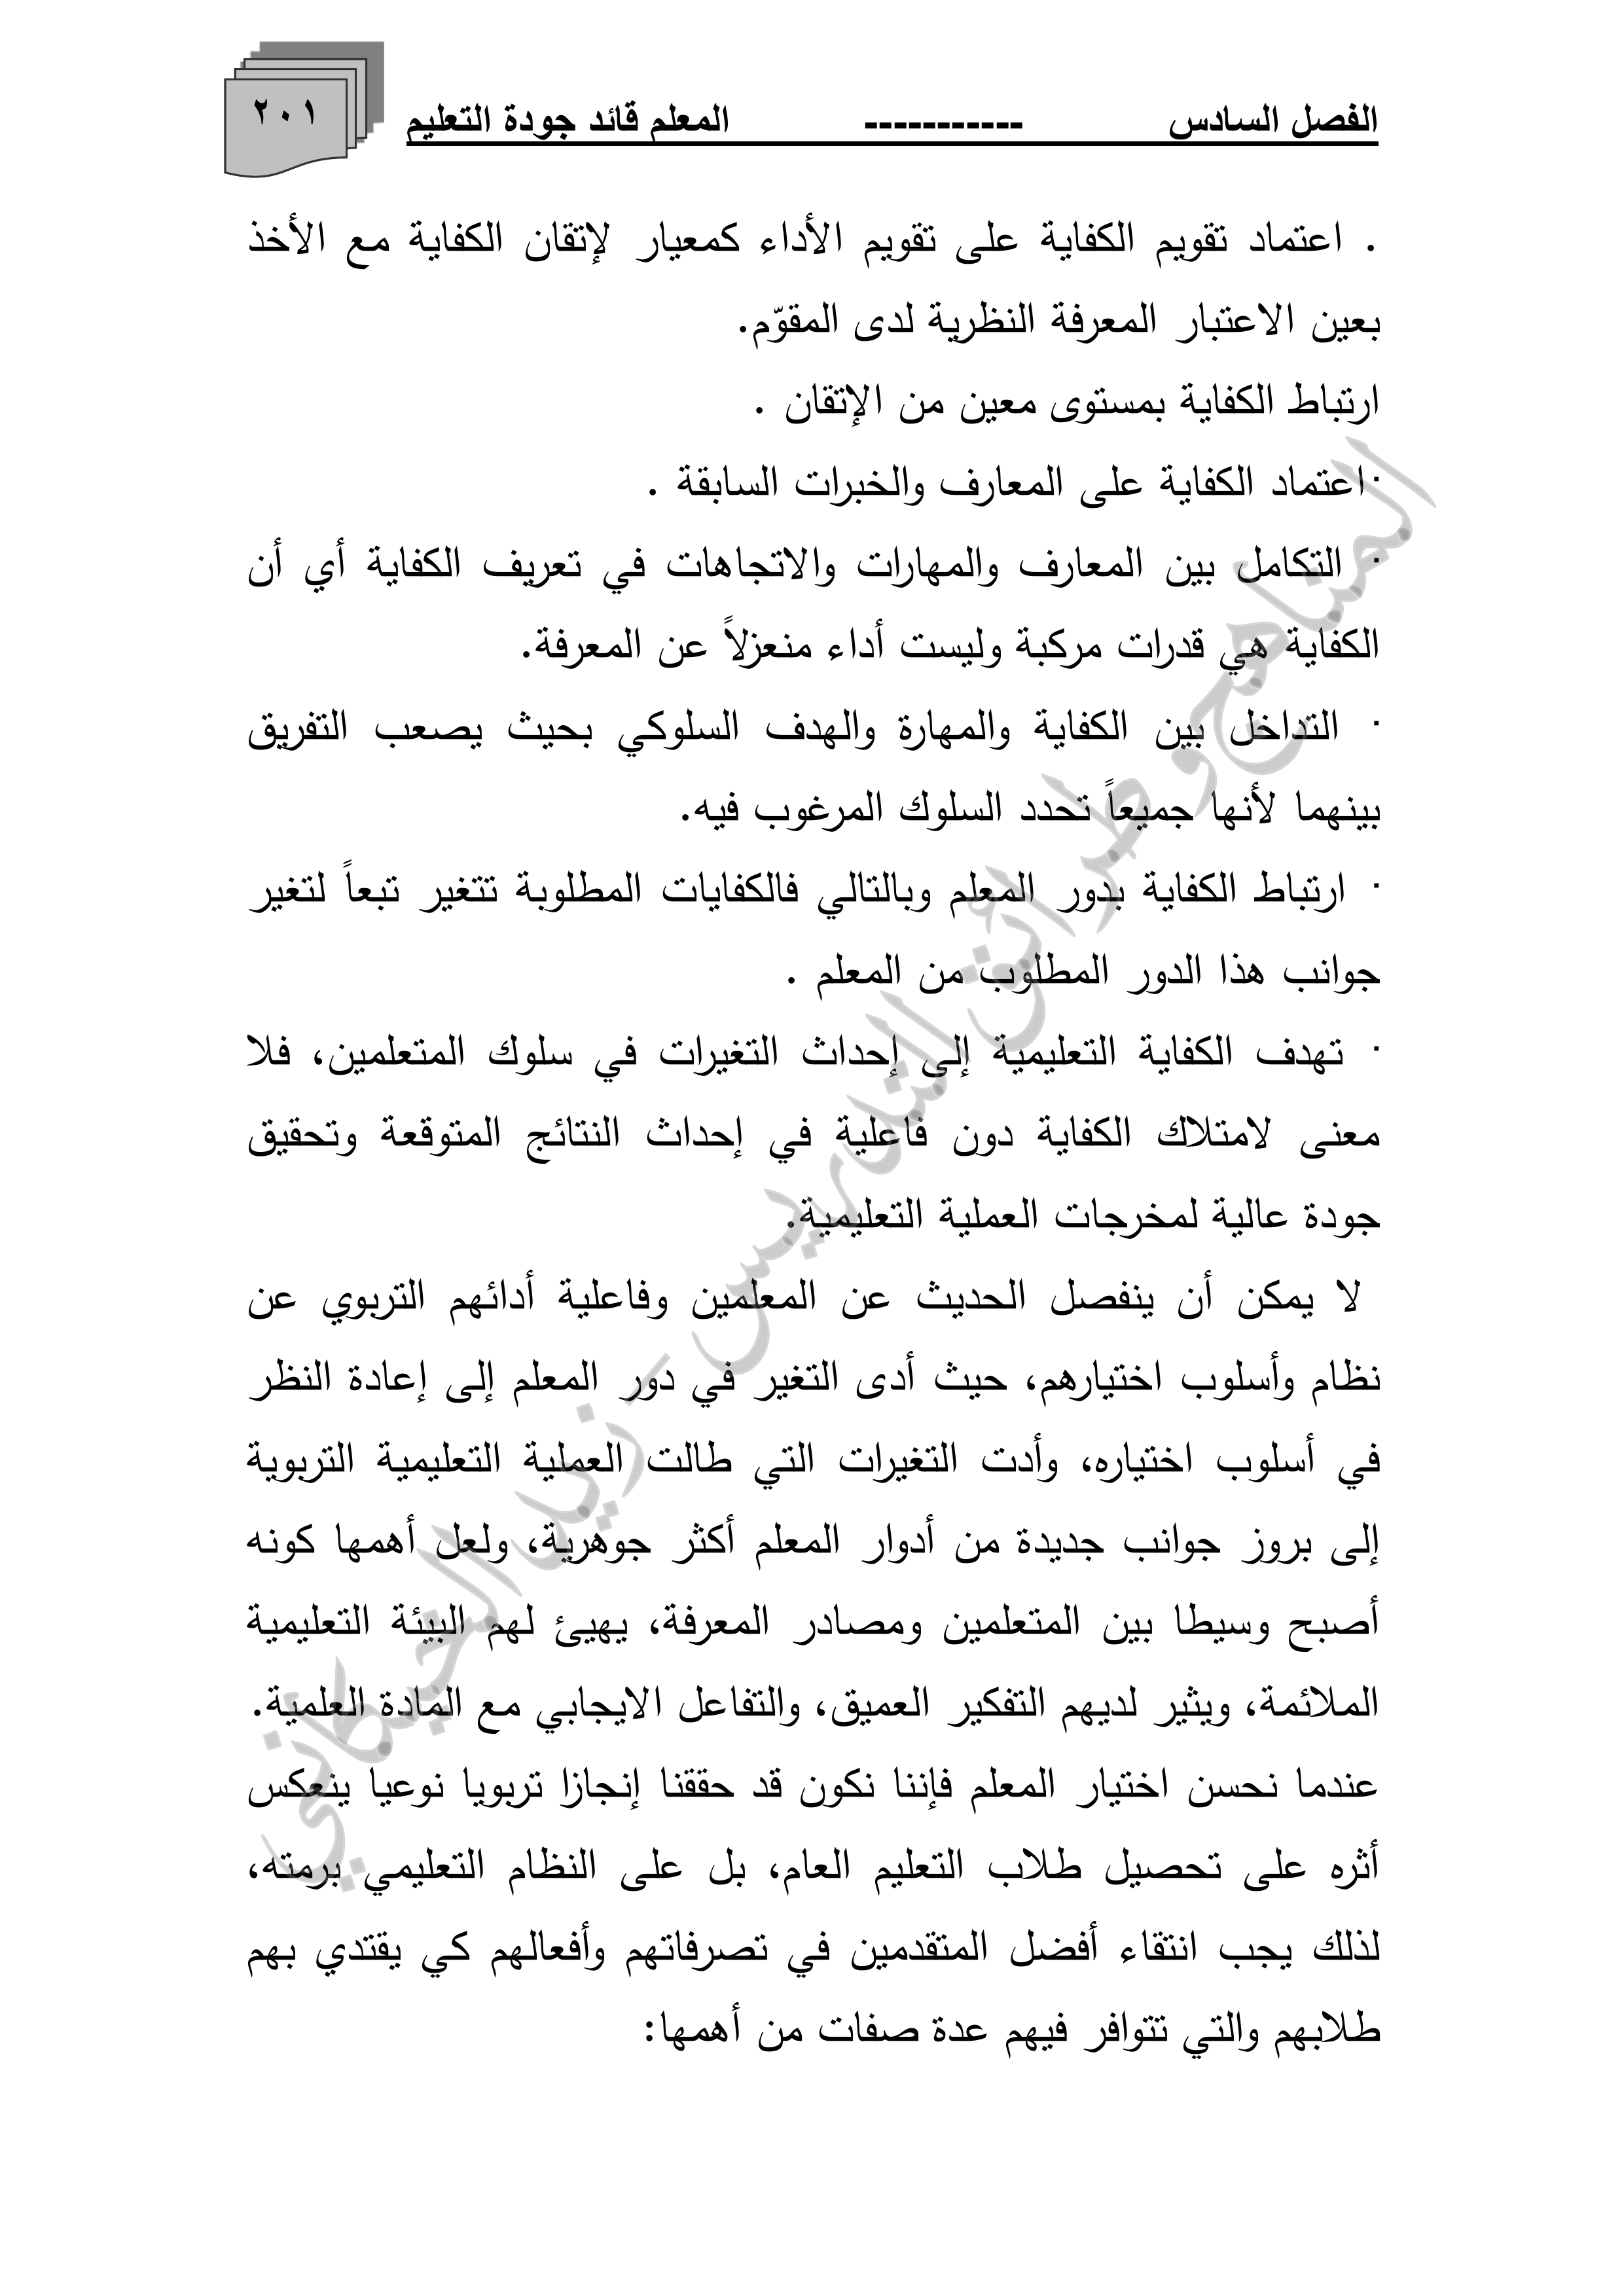 الفصل السادس ----------- المعلم قائد جودة التعليم
٢٠١
. اعتماد تقويم الكفاية على تقويم الأداء كمعيار لإتقان الكفاية مع الأخذ
بعين الاعتبار المعرفة النظرية لدى المقوّم.
ارتباط الكفاية بمستوى معين من الإتقان .
·اعتماد الكفاية على المعارف والخبرات السابقة .
· التكامل بين المعارف والمهارات والاتجاهات في تعريف الكفاية أي أن
الكفاية هي قدرات مركبة وليست أداء منعزلاً عن المعرفة.
· التداخل بين الكفاية والمهارة والهدف السلوكي بحيث يصعب التفريق
بينهما لأنها جميعاً تحدد السلوك المرغوب فيه.
· ارتباط الكفاية بدور المعلم وبالتالي فالكفايات المطلوبة تتغير تبعاً لتغير
جوانب هذا الدور المطلوب من المعلم .
· تهدف الكفاية التعليمية إلى إحداث التغيرات في سلوك المتعلمين، فلا
معنى لامتلاك الكفاية دون فاعلية في إحداث النتائج المتوقعة وتحقيق
جودة عالية لمخرجات العملية التعليمية.
لا يمكن أن ينفصل الحديث عن المعلمين وفاعلية أدائهم التربوي عن
نظام وأسلوب اختيارهم، حيث أدى التغير في دور المعلم إلى إعادة النظر
في أسلوب اختياره، وأدت التغيرات التي طالت العملية التعليمية التربوية
إلى بروز جوانب جديدة من أدوار المعلم أكثر جوهرية، ولعل أهمها كونه
أصبح وسيطا بين المتعلمين ومصادر المعرفة، يهيئ لهم البيئة التعليمية
الملائمة، ويثير لديهم التفكير العميق، والتفاعل الايجابي مع المادة العلمية.
عندما نحسن اختيار المعلم فإننا نكون قد حققنا إنجازا تربويا نوعيا ينعكس
أثره على تحصيل طلاب التعليم العام، بل على النظام التعليمي برمته،
لذلك يجب انتقاء أفضل المتقدمين في تصرفاتهم وأفعالهم كي يقتدي بهم
طلابهم والتي تتوافر فيهم عدة صفات من أهمها:
المناهج وطرائق التدريس - زيد الخيكاني